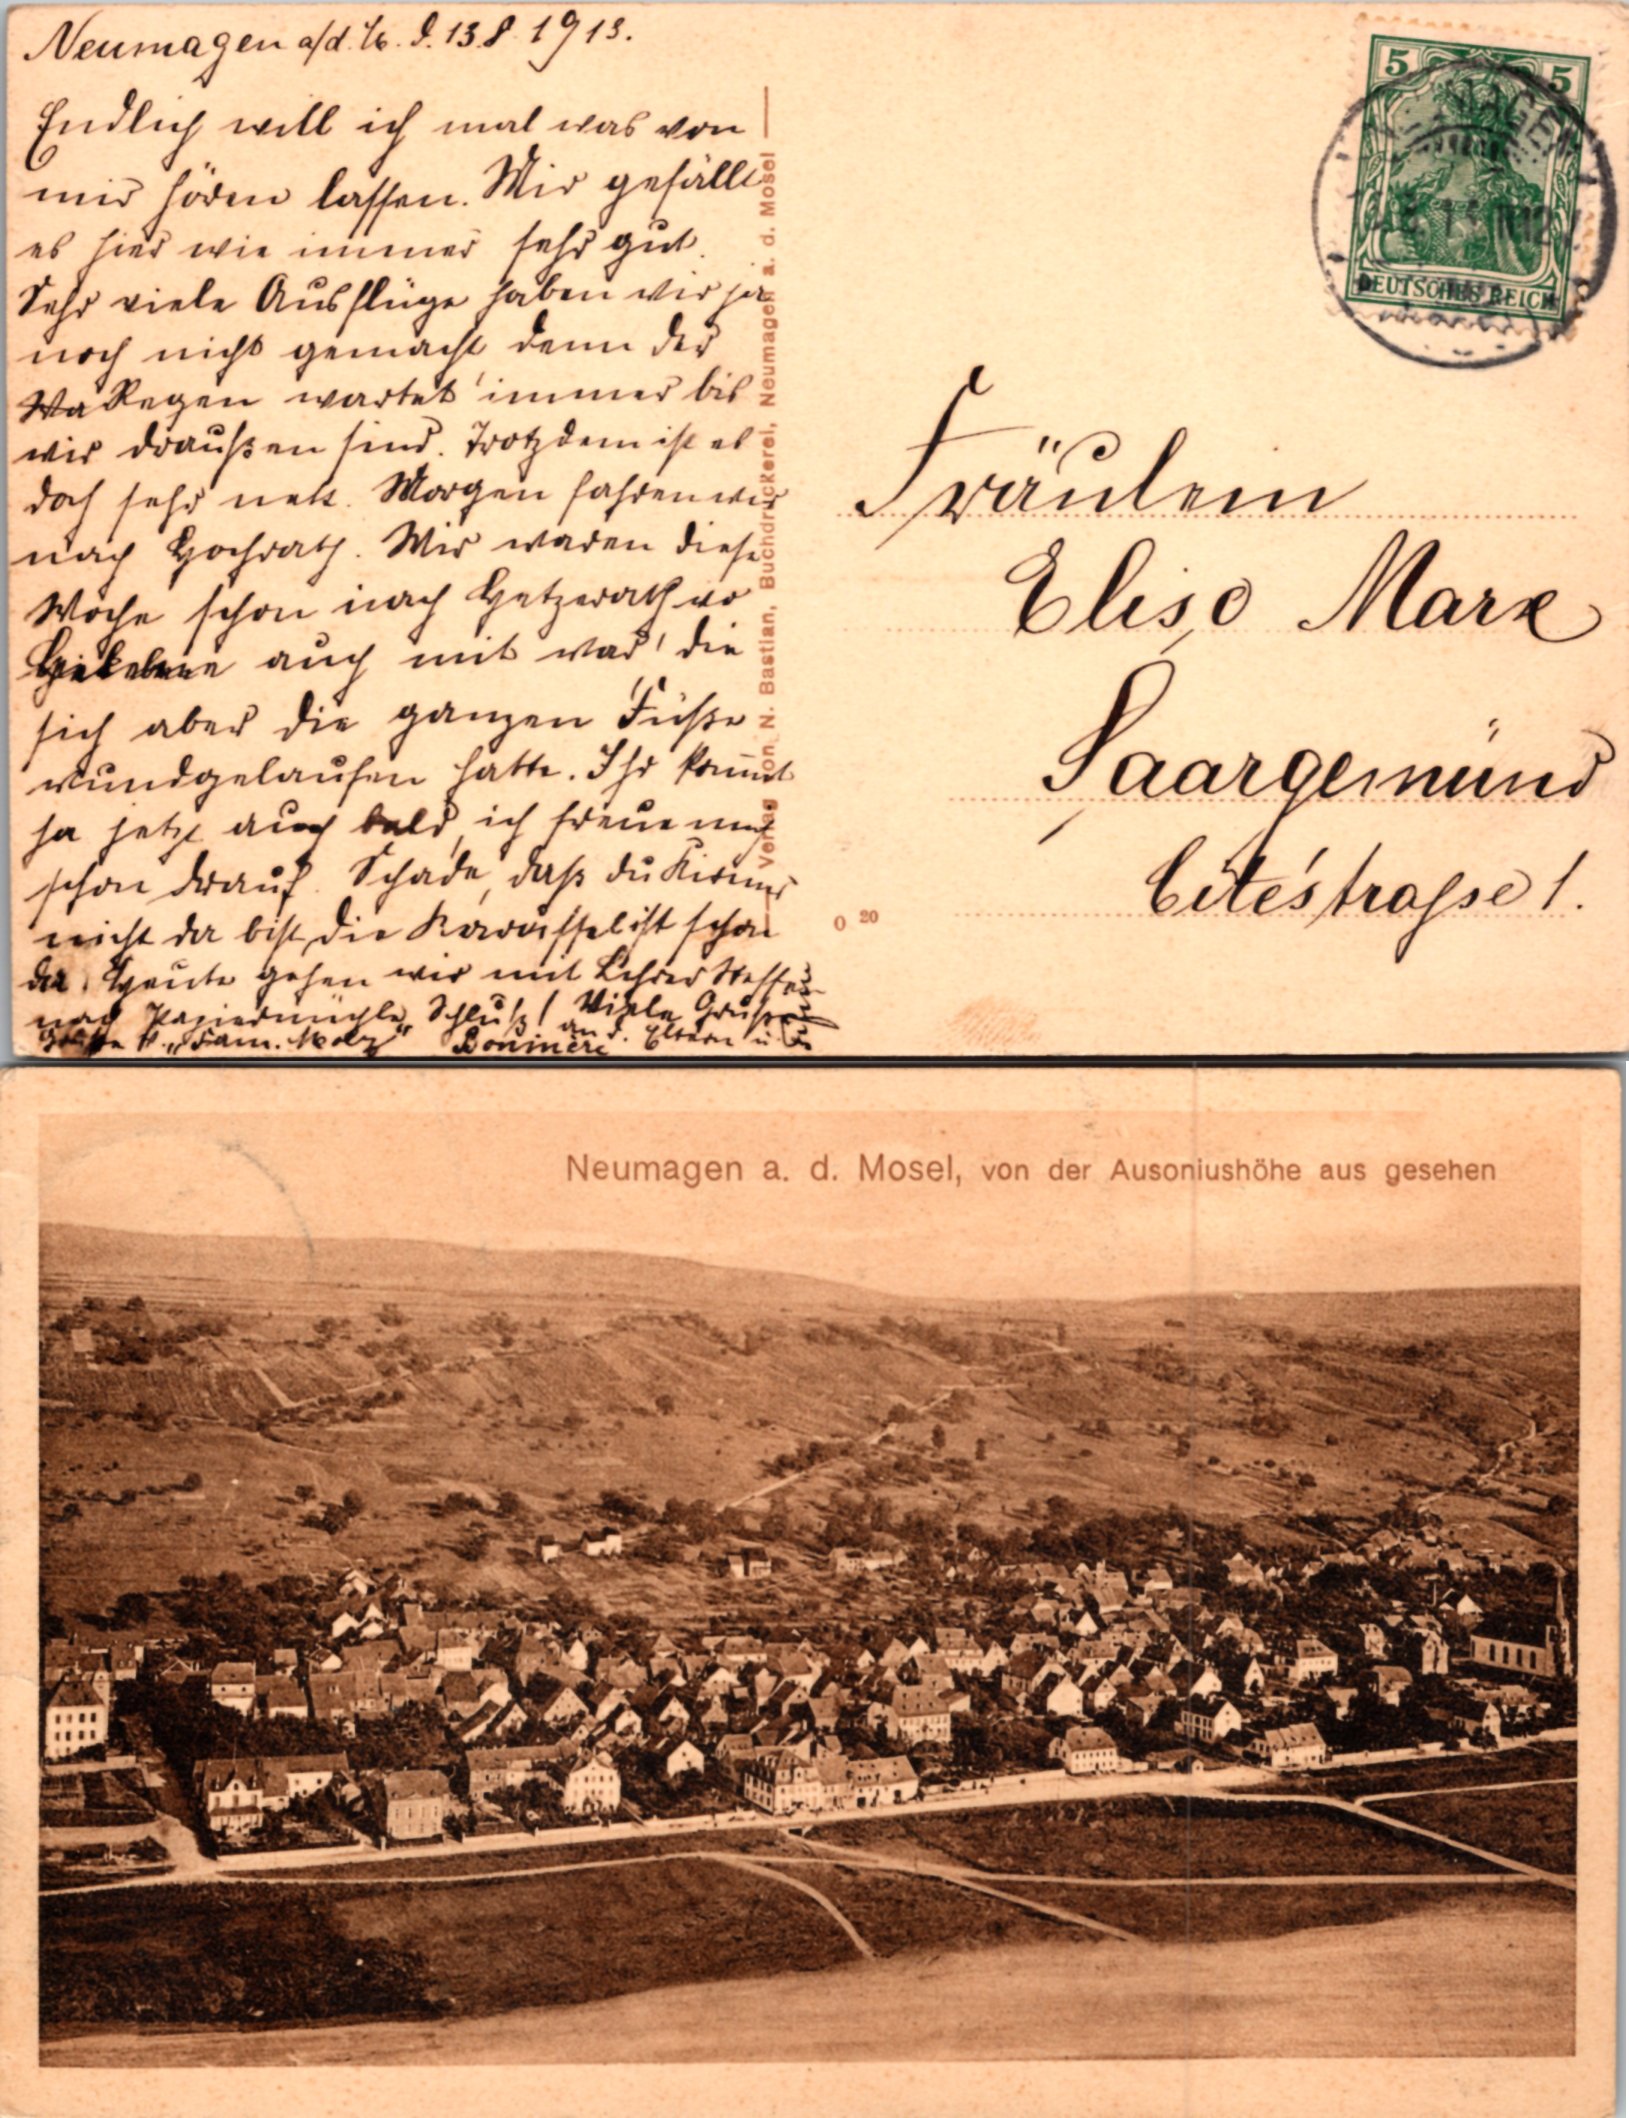 Neumagen a/d. M. d. 13.8.1913.
Endlich will ich mal was von
mir hören lassen. Mir gefällt
es hier wie immer sehr gut.
Sehr viele Ausflüge haben wir ja
noch nicht gemacht denn der
Wa Regen wartet immer bis
wir draußen sind. Trotzdem ist es
doch sehr nett. Morgen fahren wir
nach Hochrath. Wir waren diese
Woche schon nach Hetzerath wo
auch mit war, die
sich aber die ganzen Füße
wundgelaufen hatte. Ihr kommt
ja jetzt auch bald, ich freue mich
schon drauf. Schade, daß du Kirmes
nicht da bist, die Karussel ist schon
da. Heute gehen wir mit Lehrer Steffen
nach Papiermühle. Schluß! Viele Grüße
an d. Eltern u.
Grüße v. „Fam. Molz"
Verlag von N. Bastian, Buchdruckerei, Neumagen a. d. Mosel
5 5
DEUTSCHES REICH
Fräulein
Elise Marx
Saargemünd
Citéstrasse 1.
0 20
Neumagen a. d. Mosel, von der Ausoniushöhe aus gesehen